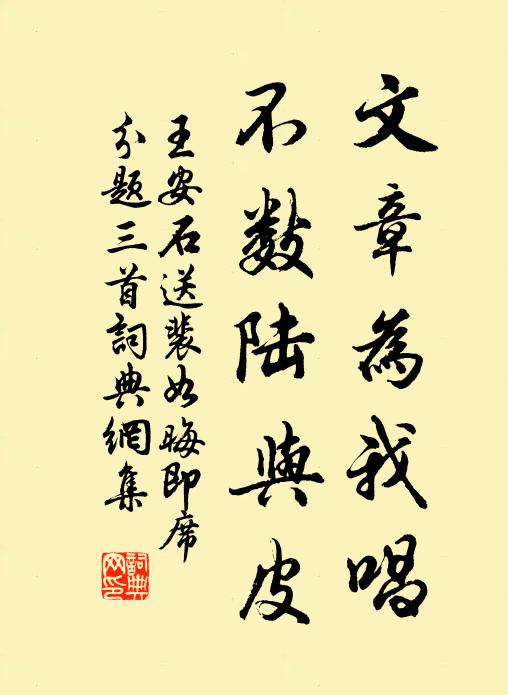 文章為我唱
不數陸與皮
王安石送裴如晦即席
分題三首詞典網集
詞典
网印